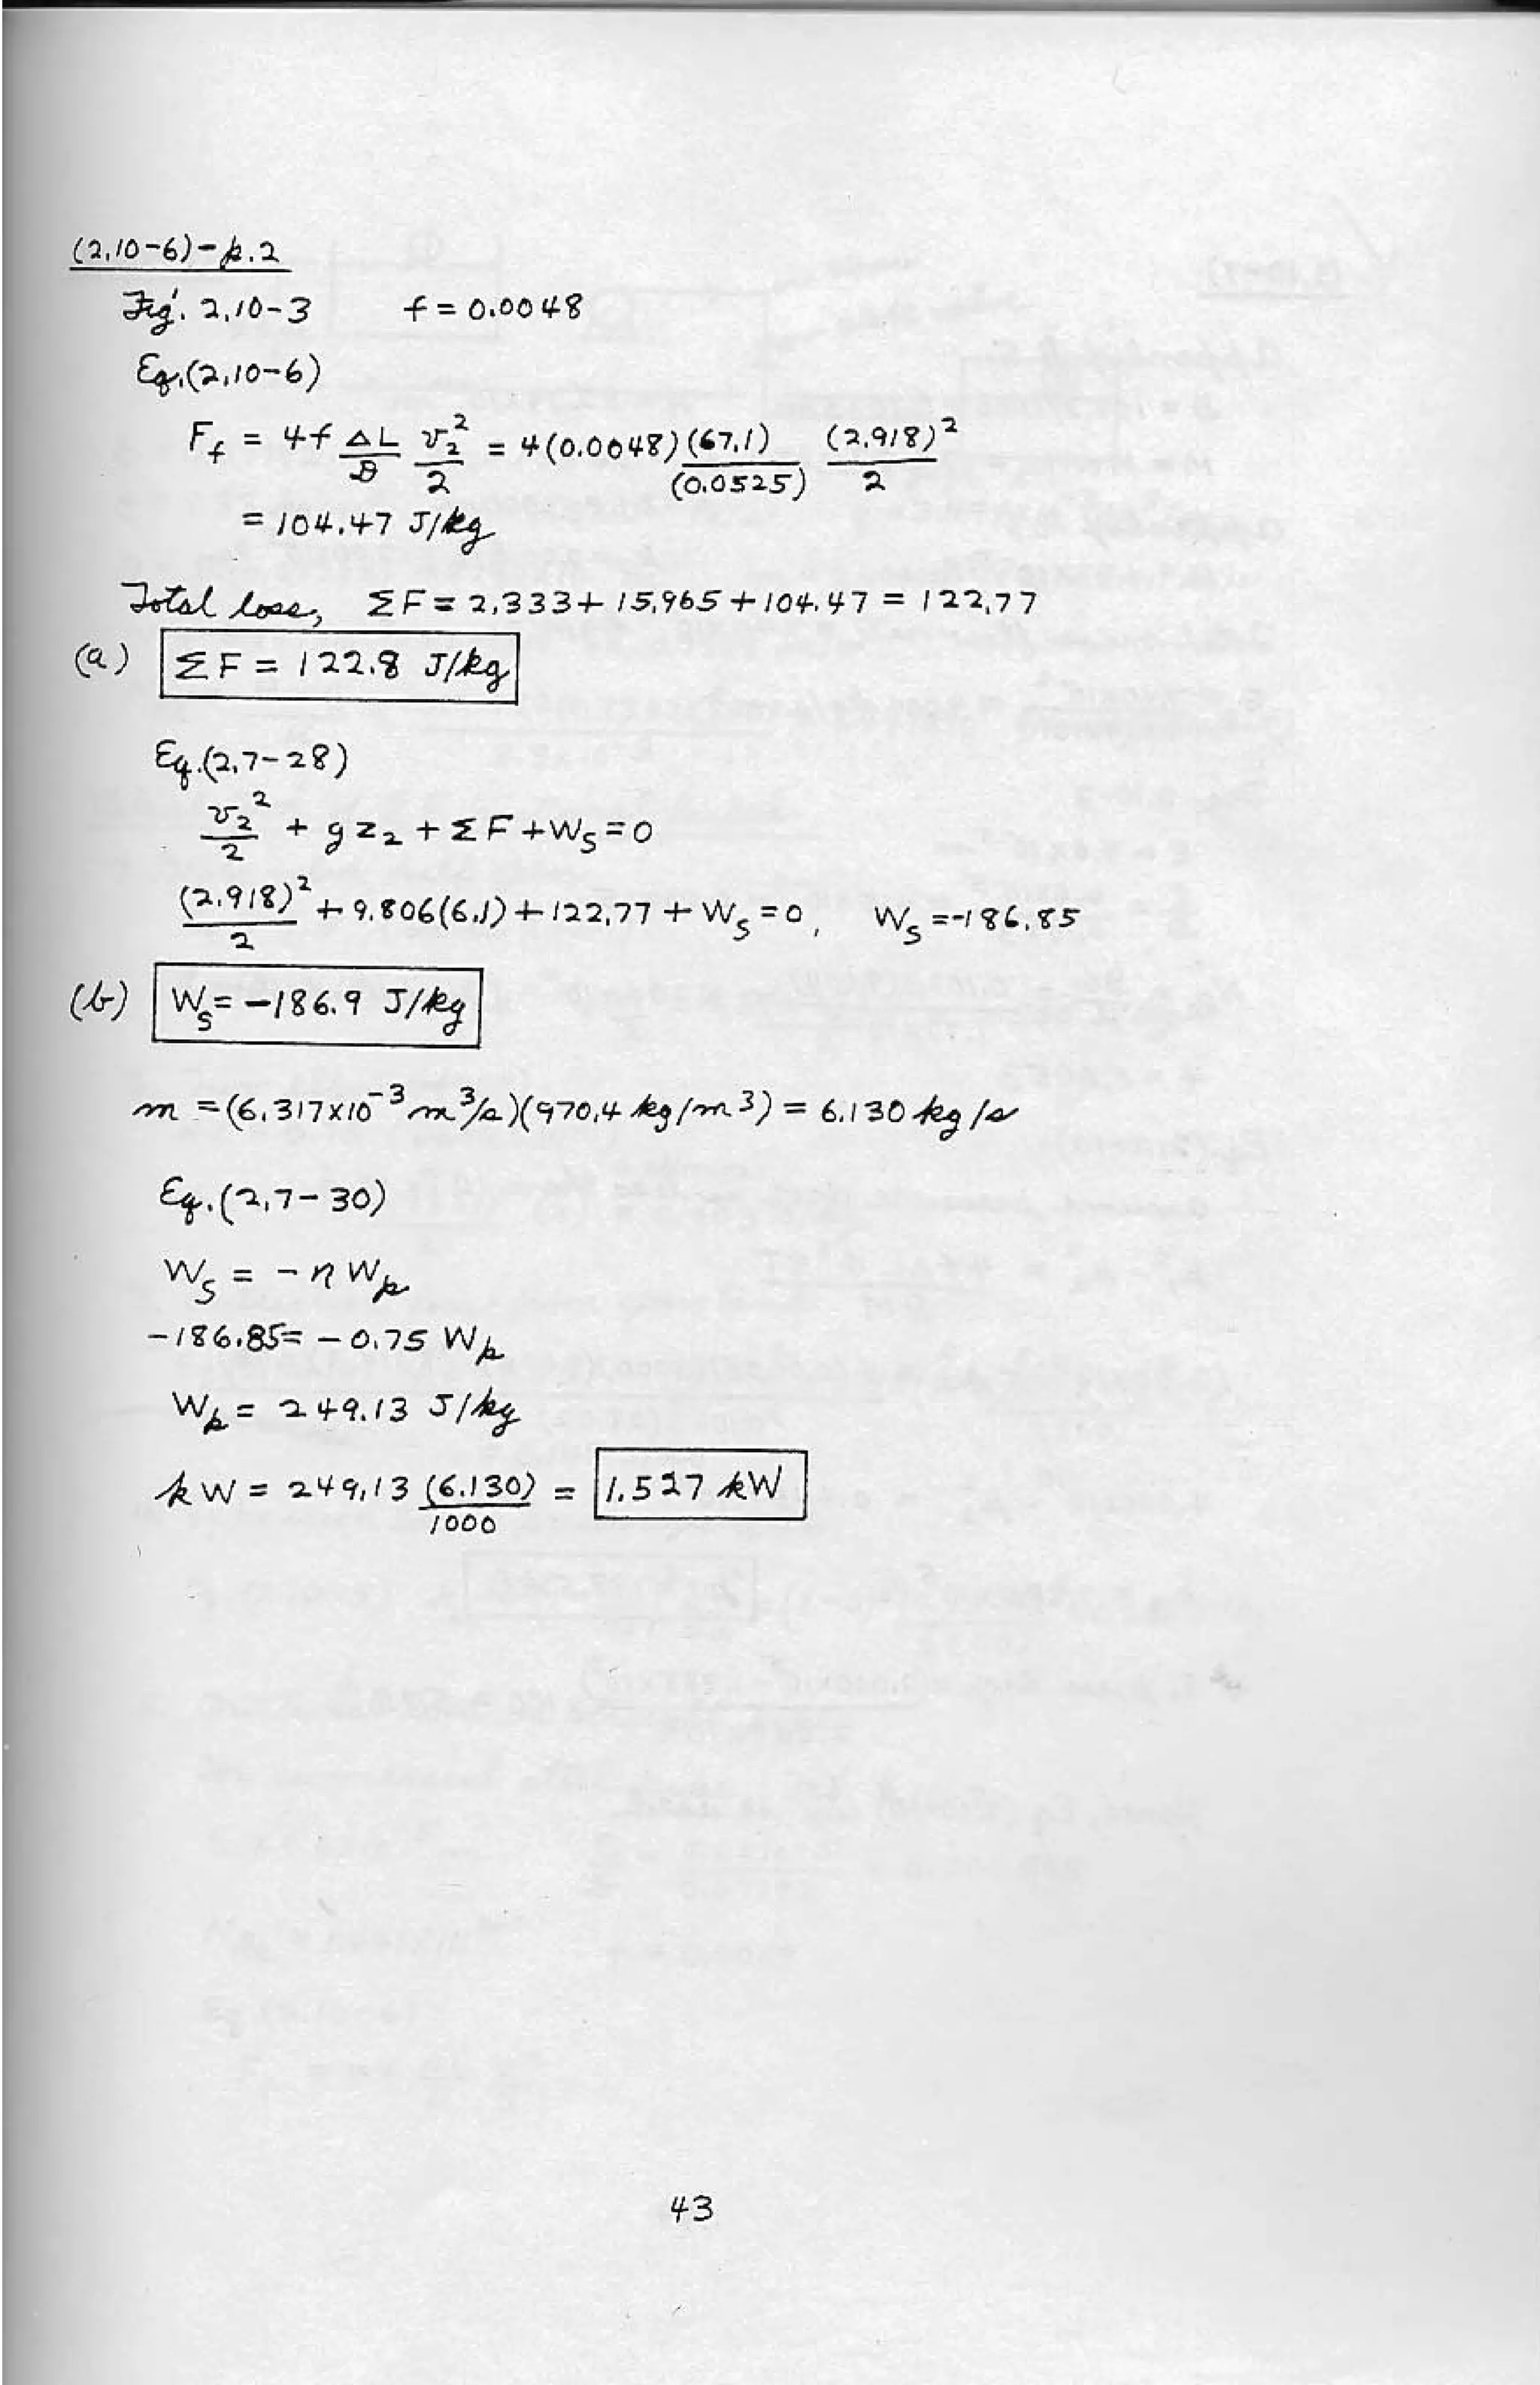 (2.10-6)-p.2
Fig. 2.10-3 f = 0.0048
Eq.(2.10-6)
F_f = 4f ΔL/D v₂²/2 = 4(0.0048) (67.1)/(0.0525) (2.918)²/2
= 104.47 J/kg
Total loss, ΣF = 2.333 + 15.965 + 104.47 = 122.77
(a) ΣF = 122.8 J/kg
Eq.(2.7-28)
v₂²/2 + g z₂ + ΣF + W_S = 0
(2.918)²/2 + 9.806(6.1) + 122.77 + W_S = 0, W_S = -186.85
(b) W_S = -186.9 J/kg
m = (6.317×10⁻³ m³/s)(970.4 kg/m³) = 6.130 kg/s
Eq.(2.7-30)
W_S = - η W_p
-186.85 = - 0.75 W_p
W_p = 249.13 J/kg
kW = 249.13 (6.130)/1000 = 1.527 kW
43